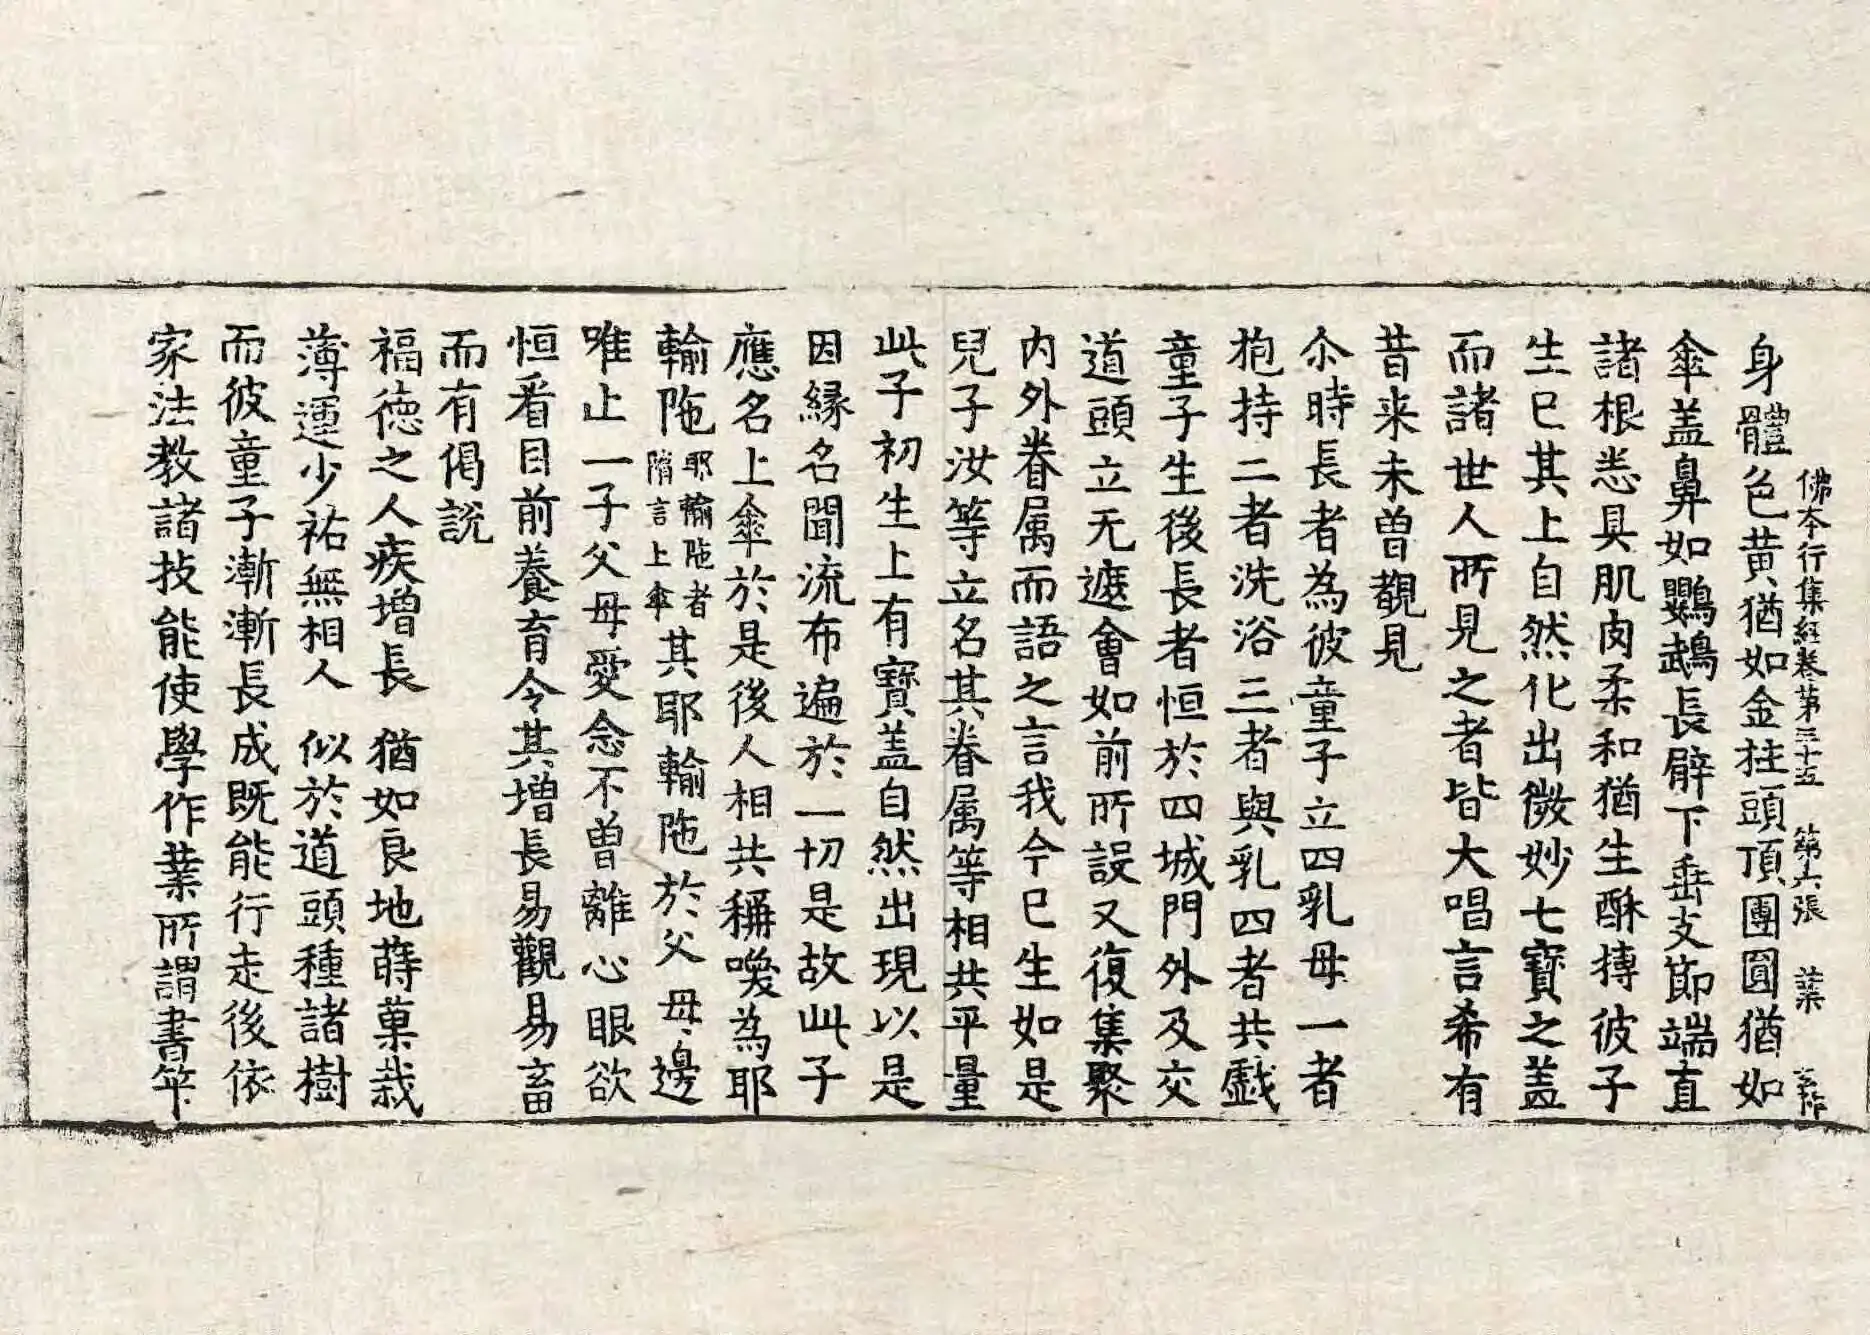 佛本行集經卷第三十五　第六張　業
身體色黃猶如金柱頭頂團圓猶如
傘盖鼻如鸚鵡長臂下垂支節端直
諸根悉具肌肉柔和猶生酥摶彼子
生已其上自然化出微妙七寶之盖
而諸世人所見之者皆大唱言希有
昔来未曾覩見
尒時長者為彼童子立四乳母一者
抱持二者洗浴三者與乳四者共戲
童子生後長者恒於四城門外及交
道頭立无遮會如前所設又復集聚
内外眷属而語之言我今已生如是
兒子汝等立名其眷属等相共平量
此子初生上有寶盖自然出現以是
因縁名聞流布遍於一切是故此子
應名上傘於是後人相共稱喚為耶
輸陁耶輸陁者隋言上傘其耶輸陁於父母邊
唯止一子父母愛念不曽離心眼欲
恒看目前養育令其增長易觀易畜
而有偈說
福德之人疾增長　猶如良地蒔菓栽
薄運少祐無相人　似於道頭種諸樹
而彼童子漸漸長成既能行走後依
家法教諸技能使學作業所謂書筭